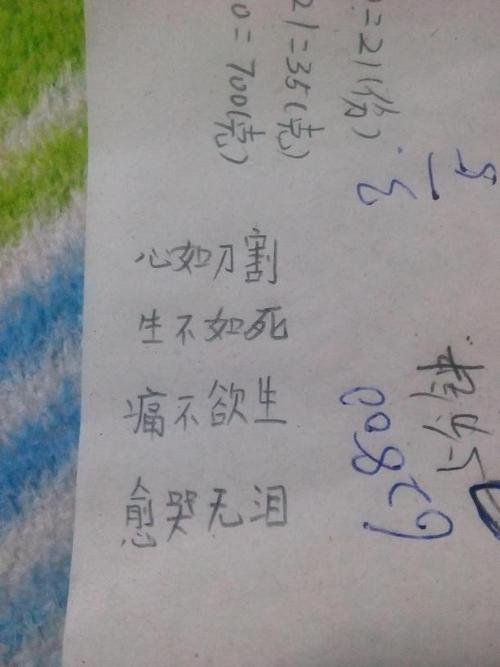 =21(份)
21=35(克)
0=700(克)
心如刀割
生不如死
痛不欲生
愈哭无泪